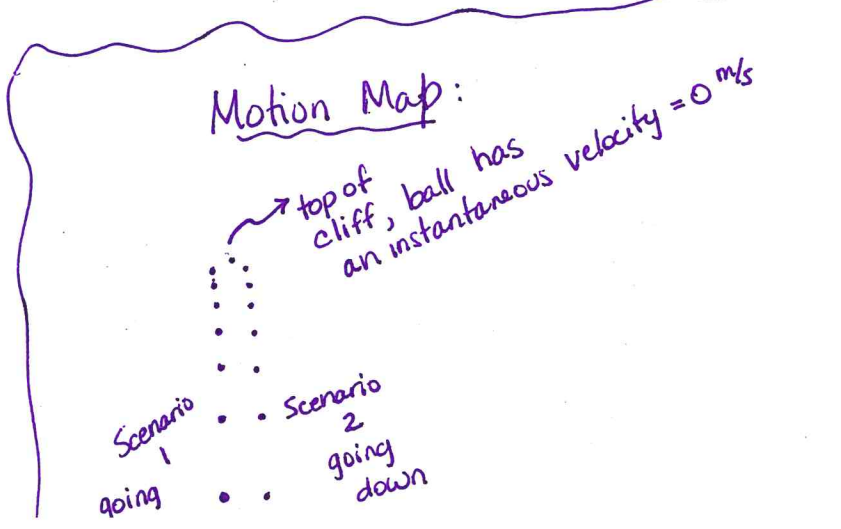 Motion Map:
top of
cliff, ball has
an instantaneous velocity = 0 m/s
Scenario
1
going
Scenario
2
going
down